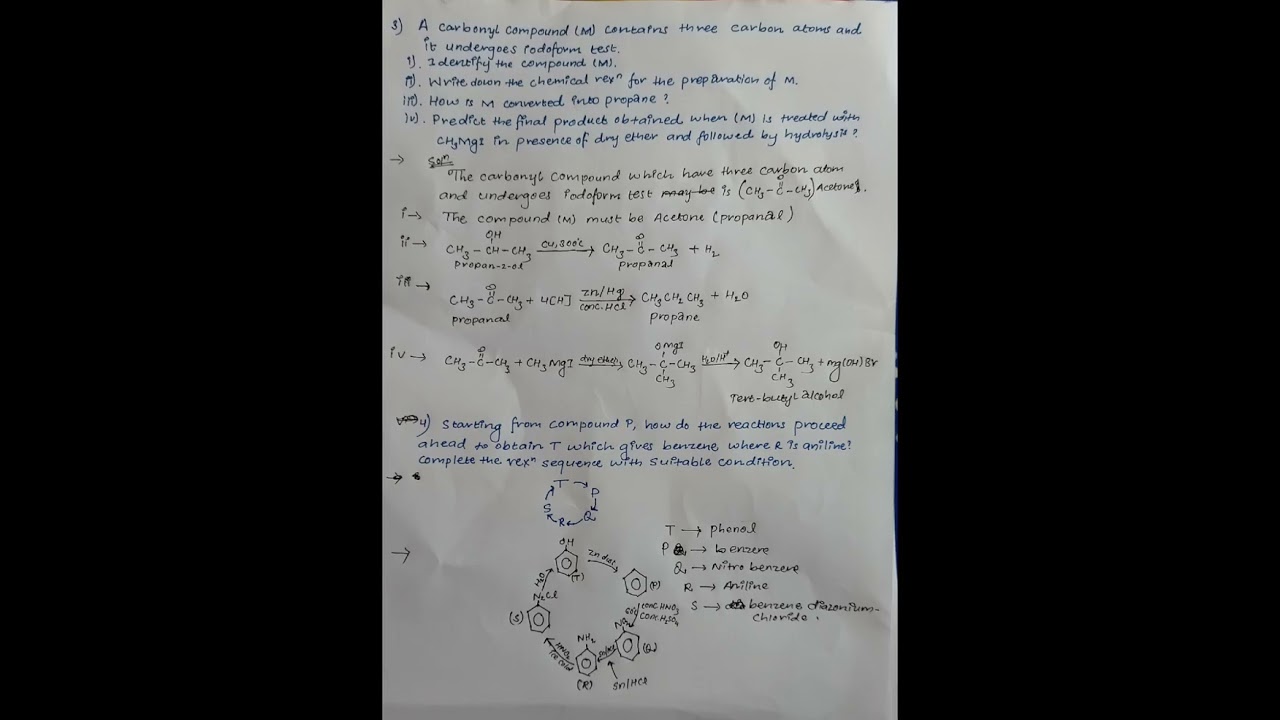 3) A carbonyl compound (M) contains three carbon atoms and
it undergoes iodoform test.
i). Identify the compound (M).
ii). Write down the chemical rexⁿ for the preparation of M.
iii). How is M converted into propane?
iv). Predict the final product obtained when (M) is treated with
CH₃MgI in presence of dry ether and followed by hydrolysis?
→ Solⁿ
The carbonyl compound which have three carbon atom
and undergoes iodoform test may be is (CH₃-C-CH₃) Acetone.
O
i→ The compound (M) must be Acetone (propanal)
OH
ii→ CH₃-CH-CH₃ Cu, 300°C → CH₃-C-CH₃ + H₂
O
propan-2-ol propanal
iii→
O
CH₃-C-CH₃ + 4[H] Zn/Hg conc.HCl → CH₃CH₂CH₃ + H₂O
propanal propane
OMgI OH
iv→ CH₃-C-CH₃ + CH₃MgI dry ether → CH₃-C-CH₃ H₂O/H⁺ → CH₃-C-CH₃ + Mg(OH)Br
O CH₃ CH₃
Tert-butyl alcohol
4) Starting from compound P, how do the reactions proceed
ahead to obtain T which gives benzene where R is aniline?
Complete the rexⁿ sequence with suitable condition.
→
T → P
S Q
R
T → phenol
P → benzene
Q → Nitro benzene
R → Aniline
S → benzene diazonium-
chloride.
→ OH
(T) Zn dist
(P)
60°C conc HNO₃
conc H₂SO₄
NO₂
(Q)
Sn/HCl
NH₂
(R)
HNO₂
N₂Cl
(S)
H₂O